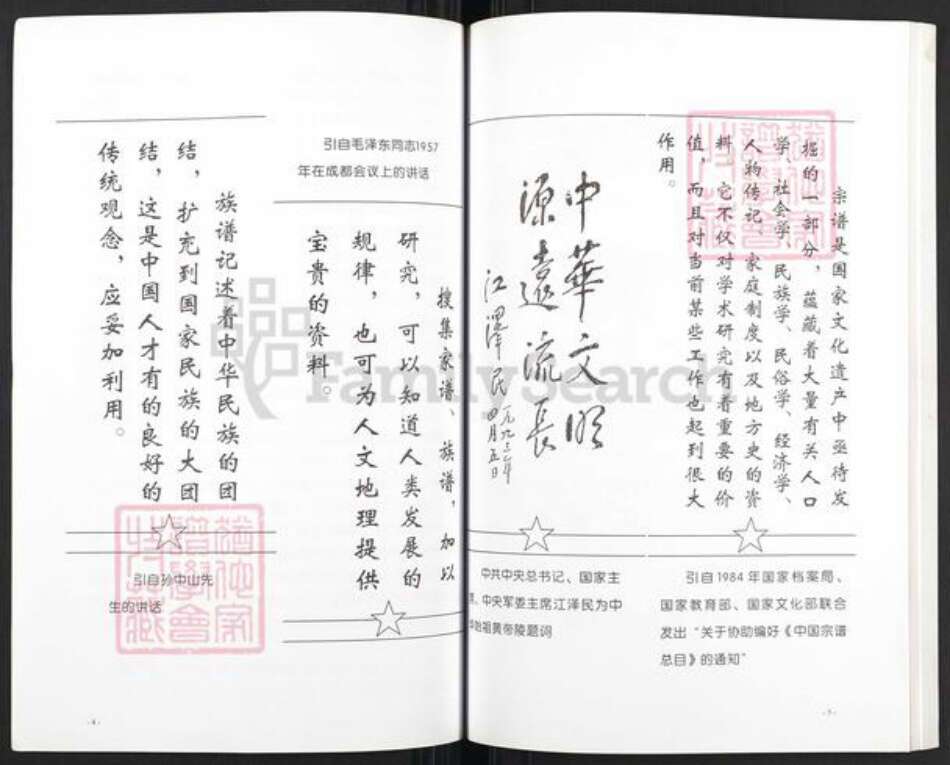 宗谱是国家文化遗产中亟待发
掘的一部分，蕴藏着大量有关人口
学、社会学、民族学、民俗学、经济学、
人物传记、家庭制度以及地方史的资
料，它不仅对学术研究有着重要的价
值，而且对当前某些工作也起到很大
作用。
引自1984年国家档案局、
国家教育部、国家文化部联合
发出“关于协助编好《中国宗谱
总目》的通知”
中華文明
源遠流長
江澤民
一九九三年
四月五日
中共中央总书记、国家主
席、中央军委主席江泽民为中
始祖黄帝陵题词
- 5 -
引自毛泽东同志1957
年在成都会议上的讲话
搜集家谱、族谱，加以
研究，可以知道人类发展的
规律，也可为人文地理提供
宝贵的资料。
族谱记述着中华民族的团
结，扩充到国家民族的大团
结，这是中国人才有的良好的
传统观念，应妥加利用。
引自孙中山先
生的讲话
- 4 -
FamilySearch